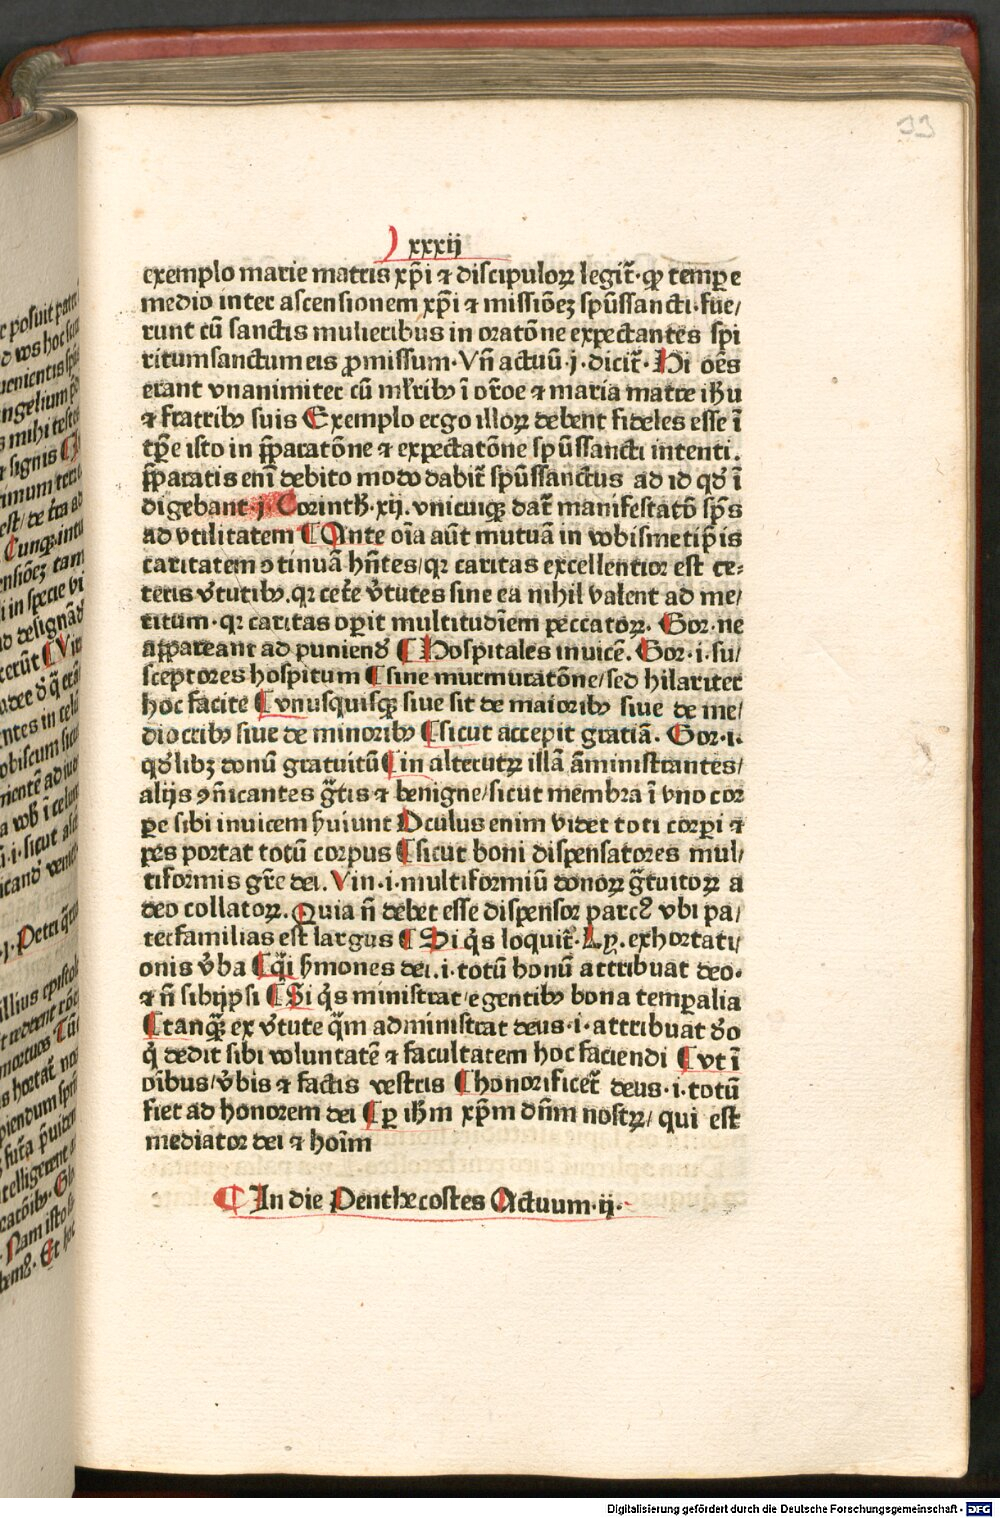 33
xxxij
exemplo marie matris xp̄i ⁊ discipuloꝝ legit̄· qꝫ temꝑe
medio inter ascensionem xp̄i ⁊ missiōeꝫ spūssancti· fue/
runt cū sanctis mulieribus in oratōne expectantes spi
ritumsanctum eis ꝓmissum· Vn̄ actuū ·j· dicit̄· Hi oēs
erant vnanimiter cū mlr̄ibꝰ ī or̄oe ⁊ maria matre ihū
⁊ fratribꝰ suis Exemplo ergo illoꝝ debent fideles esse ī
tꝑe isto in p̄paratōne ⁊ expectatōne spūssancti intenti.
p̄paratis enī debito modo dabit̄ spūssanctus ad id qd̄ ī
digebant ·j· Corinth̄ ·xij. vnicuiqꝫ dat̄ manifestatō sp̄s
ad vtilitatem ¶ Ante oīa aūt mutuā in vobismetip̄is
caritatem ꝯtinuā hn̄tes/ qꝛ caritas excellentior est ce⸗
teris v̄tutibꝰ. qꝛ cet̄e v̄tutes sine ea nihil valent ad me/
ritum· qꝛ caritas oꝑit multitudīem peccatoꝝ. Gor· ne
appareant ad puniend̄ ¶ Hospitales inuicē. Gor· i· su/
sceptores hospitum ¶ sine murmuratōne/ sed hilariter
hoc facite ¶ vnusquisqꝫ siue sit de maioribꝰ siue de me/
diocribꝰ siue de minoribꝰ ¶ sicut accepit gratiā. Gor· i.
qd̄libꝫ donū gratuitū ¶ in alterutꝝ illā āministrantes/
alijs ꝯn̄icantes gr̄tis ⁊ benigne/ sicut membra ī vno cor
ꝑe sibi inuicem ẜuiunt Oculus enim videt toti corꝑi ⁊
pes portat totū corpus ¶ sicut boni dispensatores mul/
tiformis gr̄e dei. Vin· i· multiformiū donoꝝ gr̄tuitoꝝ a
deo collatoꝝ. Quia n̄ debet esse dispensor parcꝰ vbi pa/
terfamilias est largus ¶ Si qͥs loquit̄· Ly. exhortati/
onis v̄ba ¶ qͣi ẜmones dei. i· totū bonū attribuat deo·
⁊ n̄ sibijpsi ¶ Si qͥs ministrat/ egentibꝰ bona temꝑalia
¶ tanqͣꝫ ex v̄tute qͣm administrat deus· i· attribuat d̄o
qͥ dedit sibi voluntatē ⁊ facultatem hoc faciendi ¶ vt ī
oībus/ v̄bis ⁊ factis vestris ¶ honorificet̄ deus· i· totū
fiet ad honorem dei ¶ ꝑ ih̄m xp̄m dn̄m nostꝝ/ qui est
mediator dei ⁊ hoīm
¶ In die Penthecostes Actuum· ij·
Digitalisierung gefördert durch die Deutsche Forschungsgemeinschaft - DFG